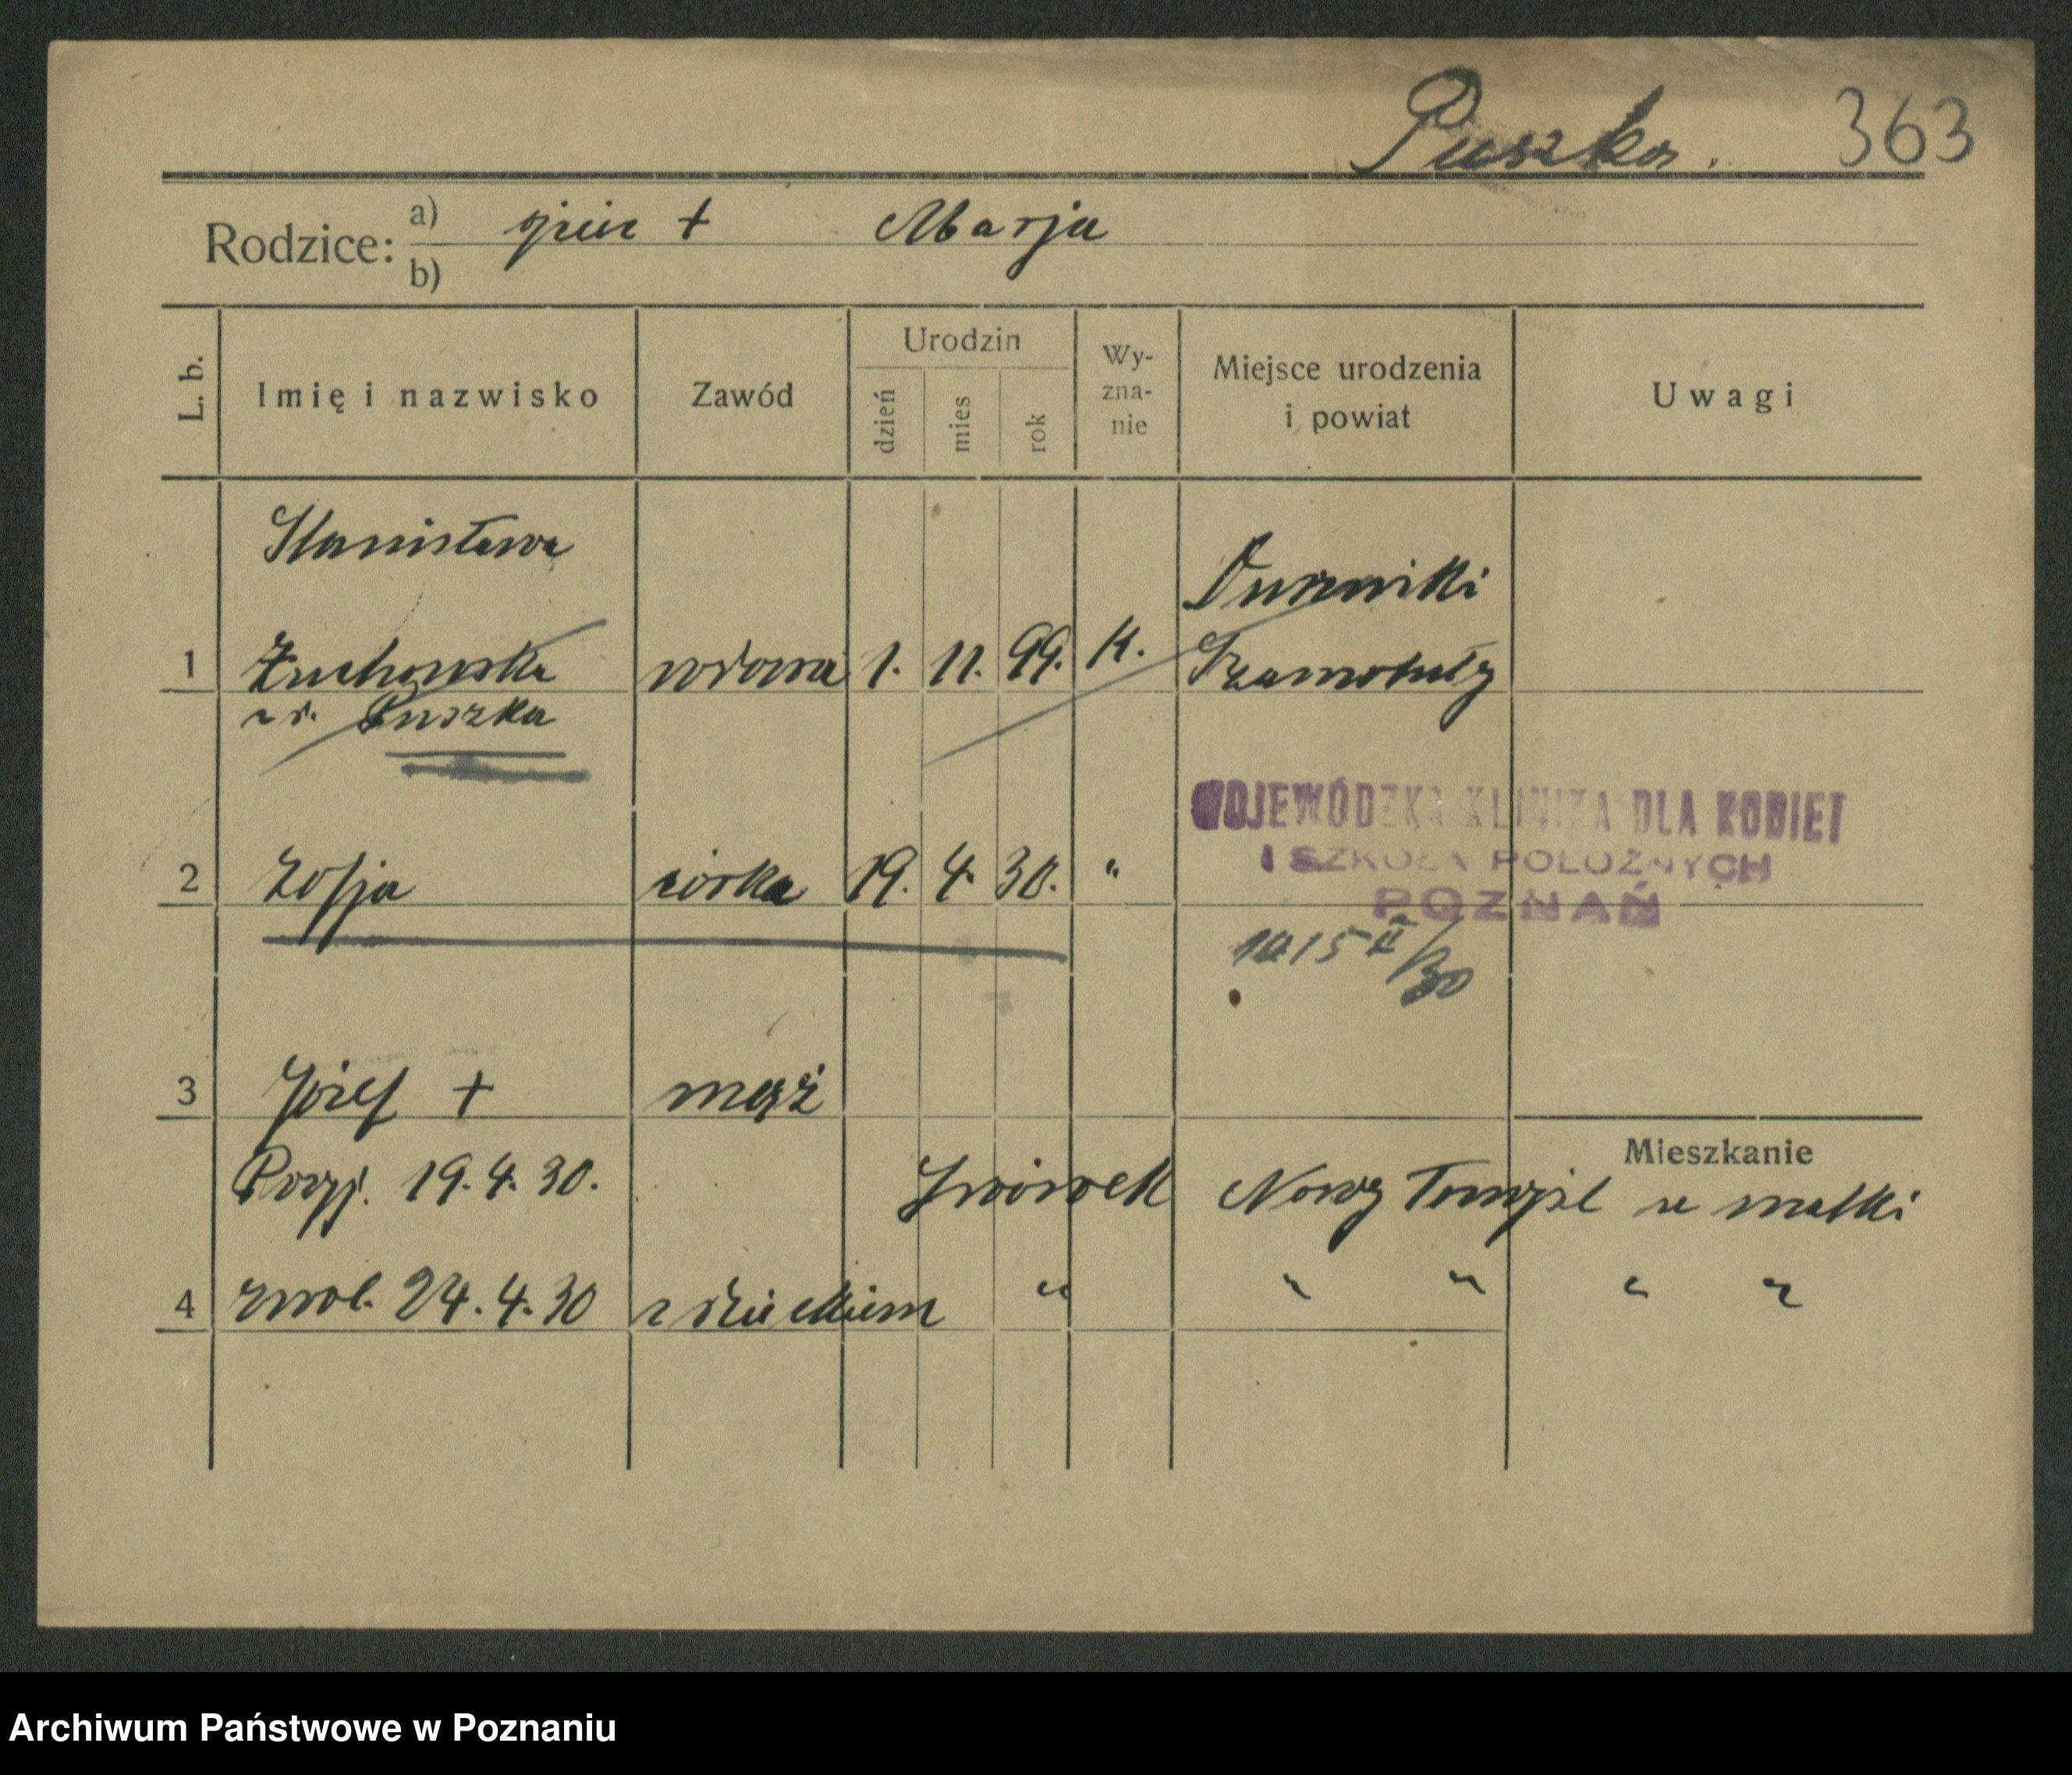 Puszka. 363
Rodzice: a) ojciec + Marja
b)
L. b. Imię i nazwisko Zawód Urodzin dzień mies rok Wy-zna-nie Miejsce urodzenia i powiat Uwagi
Stanisława
Duszniki
1 Żuchowska wdowa 1. 11. 99. K. Szamotuły
z d. Puszka
WOJEWÓDZKA KLINIKA DLA KOBIET
I SZKOŁA POŁOŻNYCH
POZNAŃ
2 Zofja córka 19. 4. 30. "
1015 II/30
3 Józef + mąż
Mieszkanie
Przyj. 19. 4. 30. Lwówek Nowy Tomyśl u matki
4 zwol. 24. 4. 30 z dzieckiem " " " " "
Archiwum Państwowe w Poznaniu